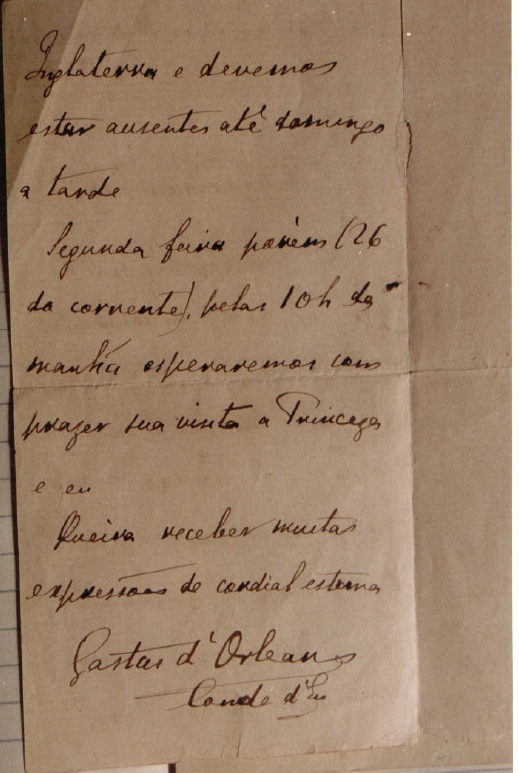 Inglaterra e devemos
estar ausentes até domingo
a tarde
Segunda feira porèm (26
do corrente), pelas 10h da
manhã esperaremos com
prazer sua visita a Princeza
e eu
Queira receber muitas
expressões de cordial estima
Gastão d'Orleans
Conde d'Eu